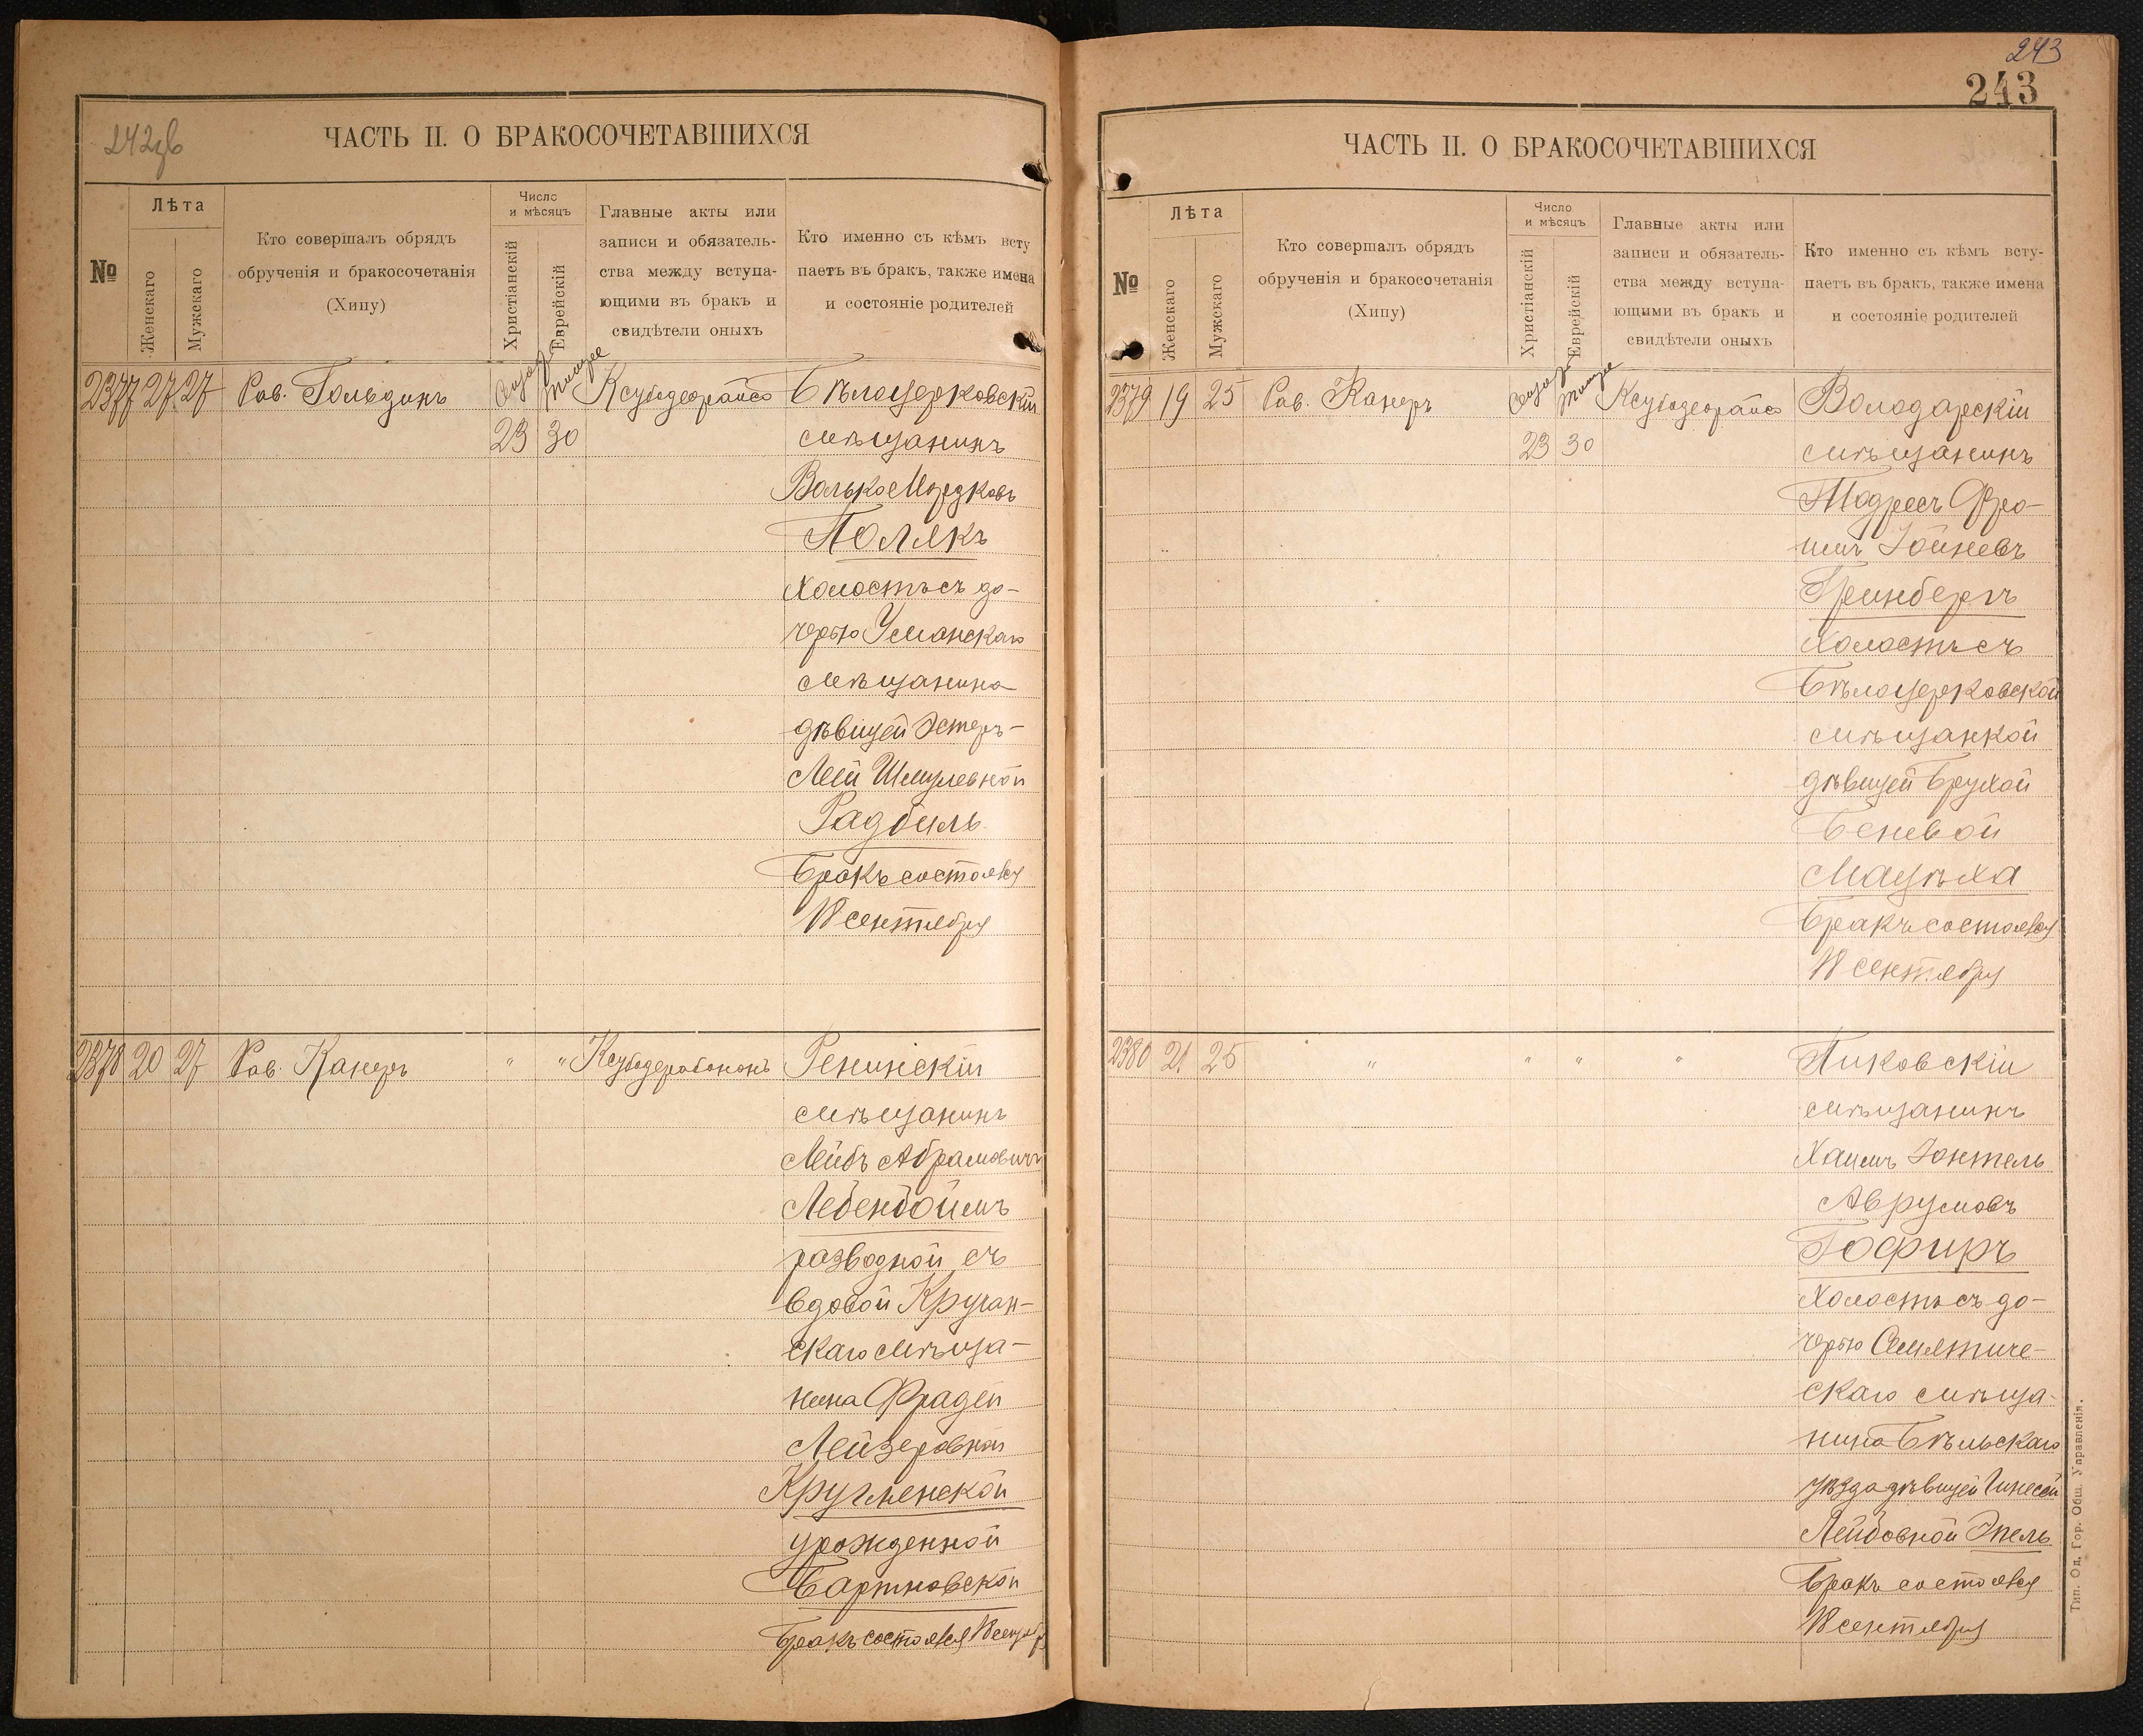 242об
ЧАСТЬ II. О БРАКОСОЧЕТАВШИХСЯ
№
Лѣта
Женскаго
Мужскаго
Кто совершалъ обрядъ
обрученія и бракосочетанія
(Хипу)
Число
и мѣсяцъ
Христіанскій
Еврейскій
Главные акты или
записи и обязатель-
ства между вступа-
ющими въ бракъ и
свидѣтели оныхъ
Кто именно съ кѣмъ всту
паетъ въ бракъ, также имена
и состояніе родителей
2377 27 27 Рав. Гольдинъ Тишре Ксубодеорайсо Бѣлоцерковскій
23 30 мѣщанинъ
Волько Мордковъ
Полякъ
холостъ съ до-
черью Уманскаго
мѣщанина
дѣвицей Эстеръ-
Леей Шмулевной
Радбиль
Бракъ состоялся
18 сентября
2378 20 27 Рав. Канеръ " " Ксубодерабононъ Ренинскій
мѣщанинъ
Лейбъ Абрамовичъ
Лебенбоймъ
разводной съ
вдовой Кручан-
скаго мѣща-
нина Фрадей
Лейзеровной
Кругленской
урожденной
Бартновской
Бракъ состоялся 18 сентяб
243
243
ЧАСТЬ II. О БРАКОСОЧЕТАВШИХСЯ
№
Лѣта
Женскаго
Мужскаго
Кто совершалъ обрядъ
обрученія и бракосочетанія
(Хипу)
Число
и мѣсяцъ
Христіанскій
Еврейскій
Главные акты или
записи и обязатель-
ства между вступа-
ющими въ бракъ и
свидѣтели оныхъ
Кто именно съ кѣмъ всту-
паетъ въ бракъ, также имена
и состояніе родителей
2379 19 25 Рав. Канеръ Тишре Ксубодеорайсо Володарскій
23 30 мѣщанинъ
Тодресъ Фро-
имъ Іойневъ
Гринбергъ
холостъ съ
Бѣлоцерковской
мѣщанкой
дѣвицей Брухой
Беневой
Мацѣха
Бракъ состоялся
18 сентября
2380 21 25 " " " " Пиковскій
мѣщанинъ
Хаимъ Іонтель
Аврумовъ
Гофиръ
холостъ съ до-
черью Семятиче-
скаго мѣща-
нина Бѣльскаго
уѣзда дѣвицей Гинесей
Лейбовной Эпель
Бракъ состоялся
18 сентября
Тип. Од. Гор. Общ. Управленія.